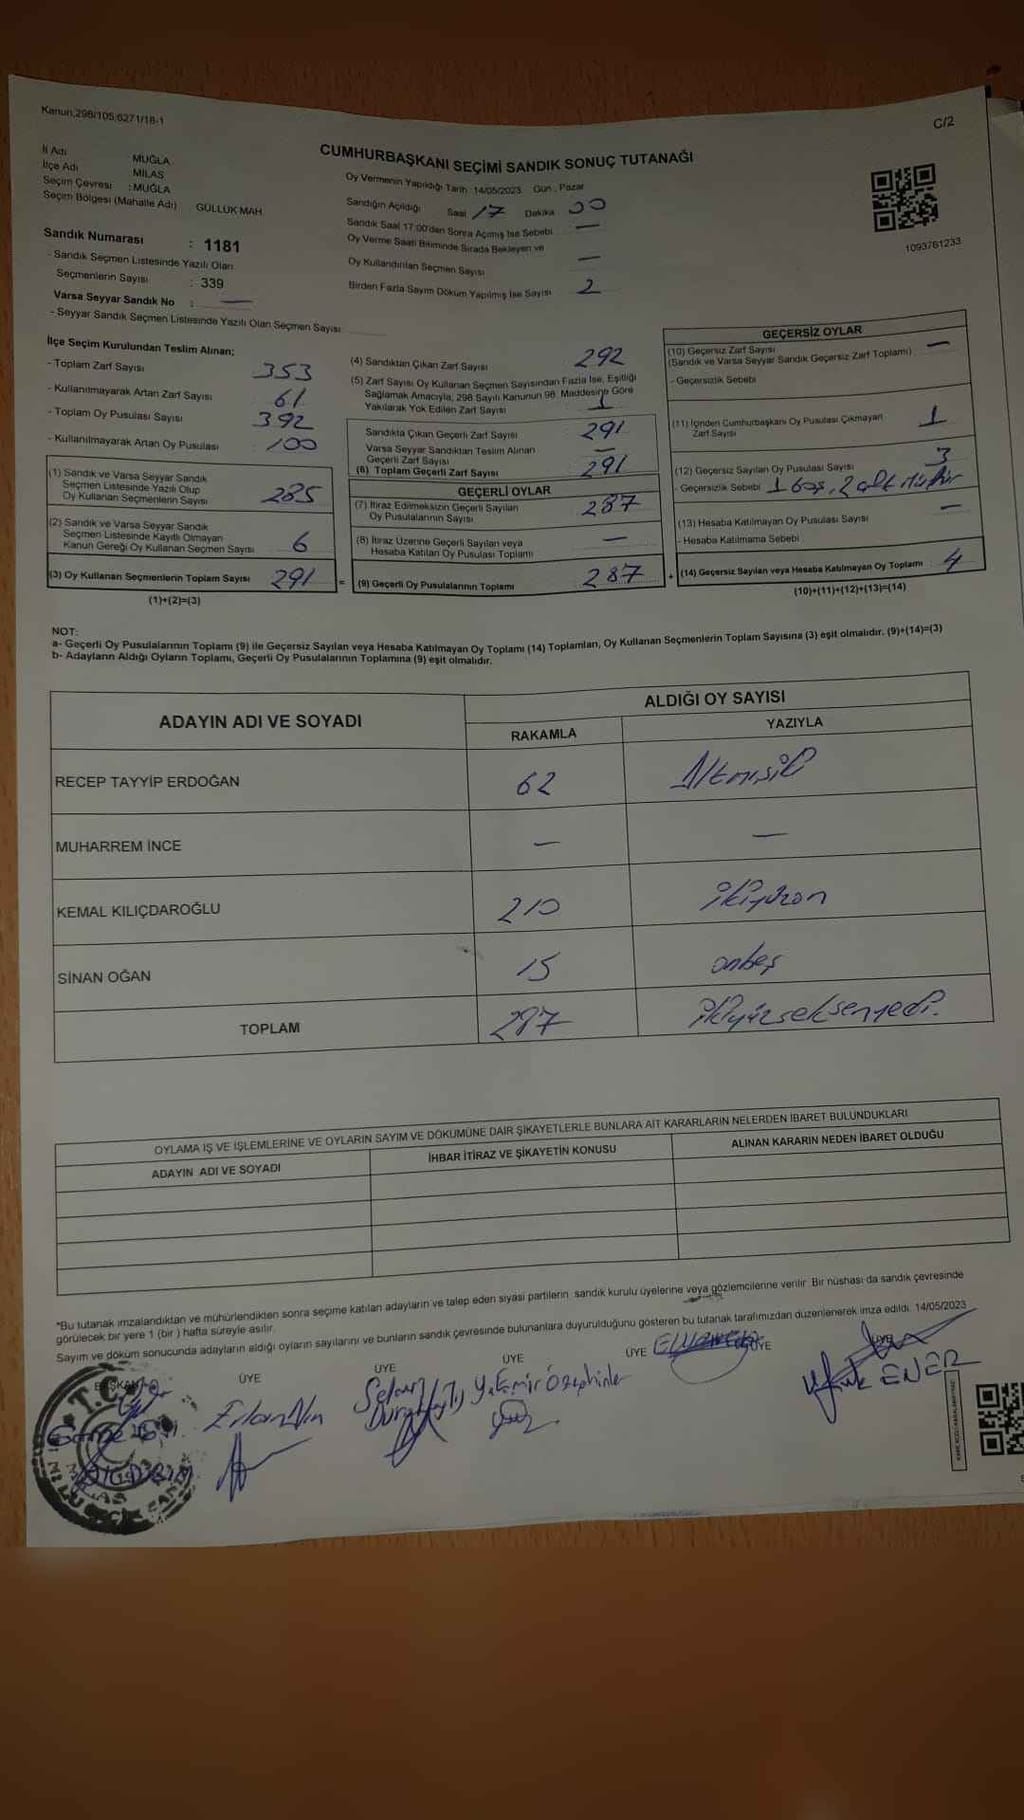 Kanun,298/105,6271/18-1
C/2
CUMHURBAŞKANI SEÇİMİ SANDIK SONUÇ TUTANAĞI
İl Adı MUĞLA
İlçe Adı MİLAS
Seçim Çevresi : MUĞLA
Seçim Bölgesi (Mahalle Adı) GÜLLÜK MAH.
Oy Vermenin Yapıldığı Tarih :14/05/2023 Gün : Pazar
Sandığın Açıldığı Saat 17 Dakika 00
Sandık Saat 17:00'den Sonra Açılmış İse Sebebi —
Oy Verme Saati Bitiminde Sırada Bekleyen ve
Oy Kullandırılan Seçmen Sayısı —
Birden Fazla Sayım Döküm Yapılmış İse Sayısı 2
1093761233
Sandık Numarası : 1181
- Sandık Seçmen Listesinde Yazılı Olan
Seçmenlerin Sayısı : 339
Varsa Seyyar Sandık No : —
- Seyyar Sandık Seçmen Listesinde Yazılı Olan Seçmen Sayısı
İlçe Seçim Kurulundan Teslim Alınan;
- Toplam Zarf Sayısı 353
- Kullanılmayarak Artan Zarf Sayısı 61
- Toplam Oy Pusulası Sayısı 392
- Kullanılmayarak Artan Oy Pusulası 100
(1) Sandık ve Varsa Seyyar Sandık
Seçmen Listesinde Yazılı Olup
Oy Kullanan Seçmenlerin Sayısı 285
(2) Sandık ve Varsa Seyyar Sandık
Seçmen Listesinde Kayıtlı Olmayan
Kanun Gereği Oy Kullanan Seçmen Sayısı 6
(3) Oy Kullanan Seçmenlerin Toplam Sayısı 291
(1)+(2)=(3)
(4) Sandıktan Çıkan Zarf Sayısı 292
(5) Zarf Sayısı Oy Kullanan Seçmen Sayısından Fazla İse, Eşitliği
Sağlamak Amacıyla, 298 Sayılı Kanunun 98. Maddesine Göre
Yakılarak Yok Edilen Zarf Sayısı 1
Sandıkta Çıkan Geçerli Zarf Sayısı 291
Varsa Seyyar Sandıktan Teslim Alınan
Geçerli Zarf Sayısı —
(6) Toplam Geçerli Zarf Sayısı 291
GEÇERLİ OYLAR
(7) İtiraz Edilmeksizin Geçerli Sayılan
Oy Pusulalarının Sayısı 287
(8) İtiraz Üzerine Geçerli Sayılan veya
Hesaba Katılan Oy Pusulası Toplamı —
= (9) Geçerli Oy Pusulalarının Toplamı 287
GEÇERSİZ OYLAR
(10) Geçersiz Zarf Sayısı —
(Sandık ve Varsa Seyyar Sandık Geçersiz Zarf Toplamı)
- Geçersizlik Sebebi
(11) İçinden Cumhurbaşkanı Oy Pusulası Çıkmayan
Zarf Sayısı 1
(12) Geçersiz Sayılan Oy Pusulası Sayısı 3
- Geçersizlik Sebebi 1 boş, 2 çift mühür
(13) Hesaba Katılmayan Oy Pusulası Sayısı —
- Hesaba Katılmama Sebebi
+ (14) Geçersiz Sayılan veya Hesaba Katılmayan Oy Toplamı 4
(10)+(11)+(12)+(13)=(14)
NOT:
a- Geçerli Oy Pusulalarının Toplamı (9) ile Geçersiz Sayılan veya Hesaba Katılmayan Oy Toplamı (14) Toplamları, Oy Kullanan Seçmenlerin Toplam Sayısına (3) eşit olmalıdır. (9)+(14)=(3)
b- Adayların Aldığı Oyların Toplamı, Geçerli Oy Pusulalarının Toplamına (9) eşit olmalıdır.
ADAYIN ADI VE SOYADI ALDIĞI OY SAYISI
RAKAMLA YAZIYLA
RECEP TAYYİP ERDOĞAN 62 Altmışiki
MUHARREM İNCE — —
KEMAL KILIÇDAROĞLU 210 İkiyüzon
SİNAN OĞAN 15 onbeş
TOPLAM 287 İkiyüzseksenyedi.
OYLAMA İŞ VE İŞLEMLERİNE VE OYLARIN SAYIM VE DÖKÜMÜNE DAİR ŞİKAYETLERLE BUNLARA AİT KARARLARIN NELERDEN İBARET BULUNDUKLARI
ADAYIN ADI VE SOYADI İHBAR İTİRAZ VE ŞİKAYETİN KONUSU ALINAN KARARIN NEDEN İBARET OLDUĞU
*Bu tutanak imzalandıktan ve mühürlendikten sonra seçime katılan adayların ve talep eden siyasi partilerin sandık kurulu üyelerine veya gözlemcilerine verilir. Bir nüshası da sandık çevresinde
görülecek bir yere 1 (bir) hafta süreyle asılır.
Sayım ve döküm sonucunda adayların aldığı oyların sayılarını ve bunların sandık çevresinde bulunanlara duyurulduğunu gösteren bu tutanak tarafımızdan düzenlenerek imza edildi. 14/05/2023
BAŞKAN ÜYE ÜYE ÜYE ÜYE ÜYE ÜYE
T.C.
Y. Emir
ENER